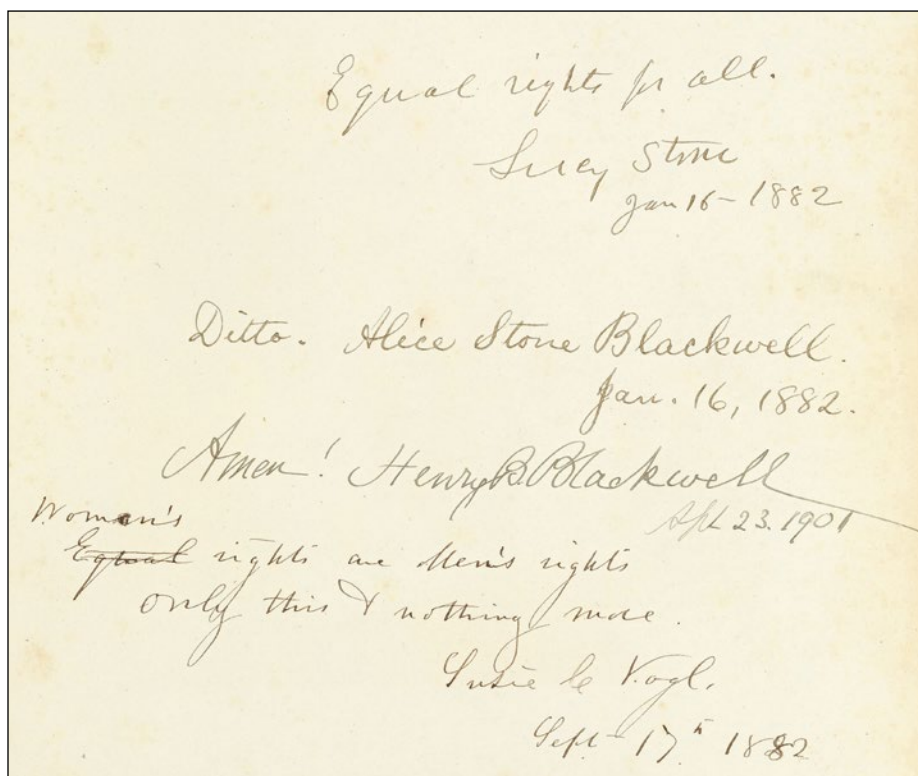 Equal rights for all.
Lucy Stone
Jan 16 - 1882
Ditto. Alice Stone Blackwell.
Jan. 16, 1882.
Amen! Henry B. Blackwell
23. 1901
Woman's
Equal rights are Men's rights
only this & nothing more.
Susie Vogl.
Sept 17th 1882